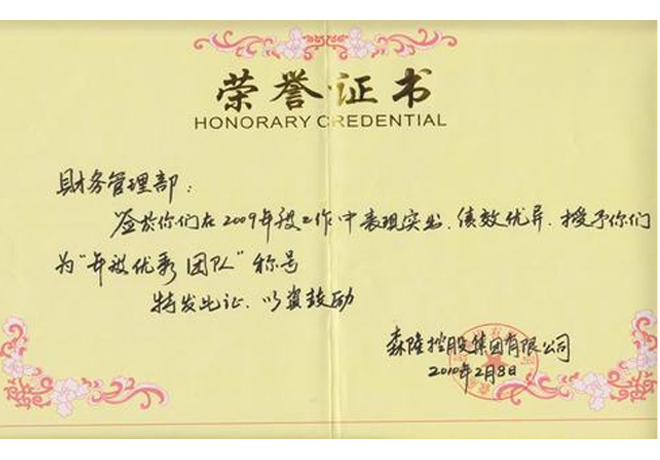 荣誉证书
HONORARY CREDENTIAL
财务管理部：
鉴於你们在2009年度工作中表现突出、绩效优异、授予你们
为“年度优秀团队”称号
特发此证、以资鼓励
森隆控股集团有限公司
2010年2月8日